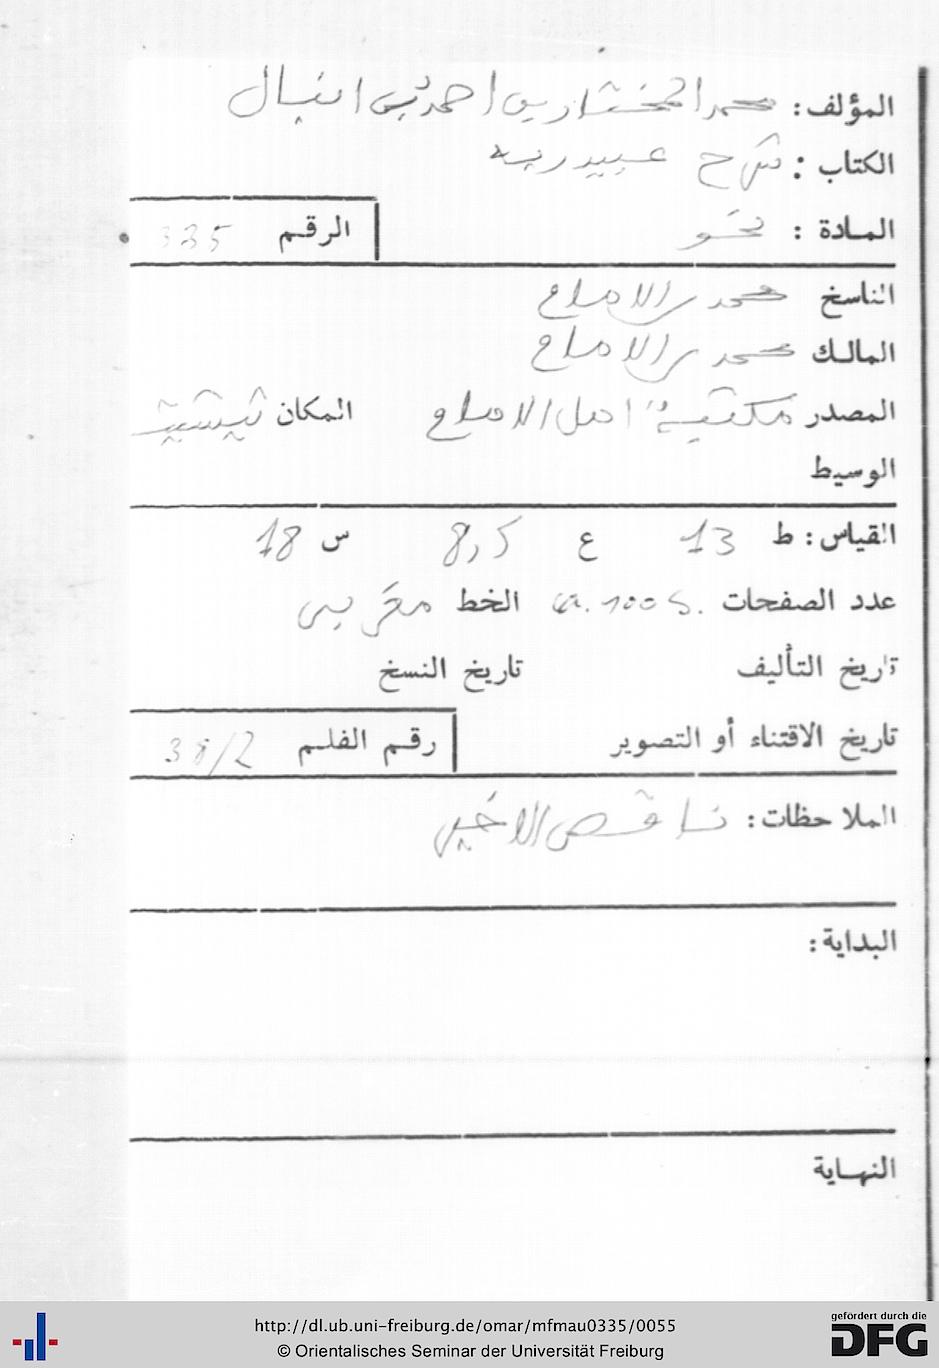 المؤلف: محمد المختار بن احمد بن انبال
الكتاب: شرح عبيد ربه
المادة: نحو
الرقم 335
الناسخ محمد بن الامام
المالك محمد بن الامام
المصدر مكتبة اهل الامام المكان تيشيت
الوسيط
القياس: ط 13 ع 8,5 س 18
عدد الصفحات ca. 100 S. الخط مغربي
تاريخ التأليف تاريخ النسخ
تاريخ الاقتناء أو التصوير رقم الفلم 38/2
الملاحظات: ناقص الاخير
البداية:
النهاية
http://dl.ub.uni-freiburg.de/omar/mfmau0335/0055
© Orientalisches Seminar der Universität Freiburg
gefördert durch die
DFG